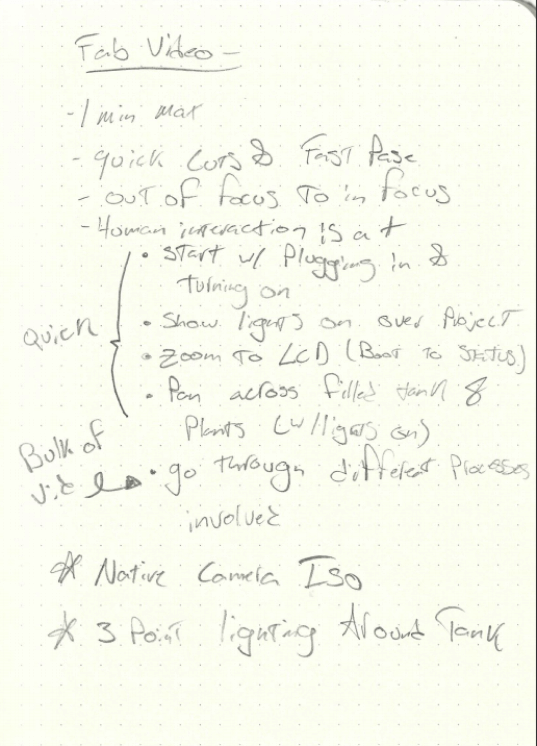 Fab Video -
- 1 min max
- quick cuts & Fast Pase
- out of focus to in focus
- Human interaction is a +
• Start w/ Plugging in &
turning on
• Show lights on over Project
Quick
• Zoom to LCD (Boot to Status)
• Pan across filled tank &
Plants (w/lights on)
Bulk of
video
• go through different Processes
involved
* Native Camera ISO
* 3 Point lighting Around Tank